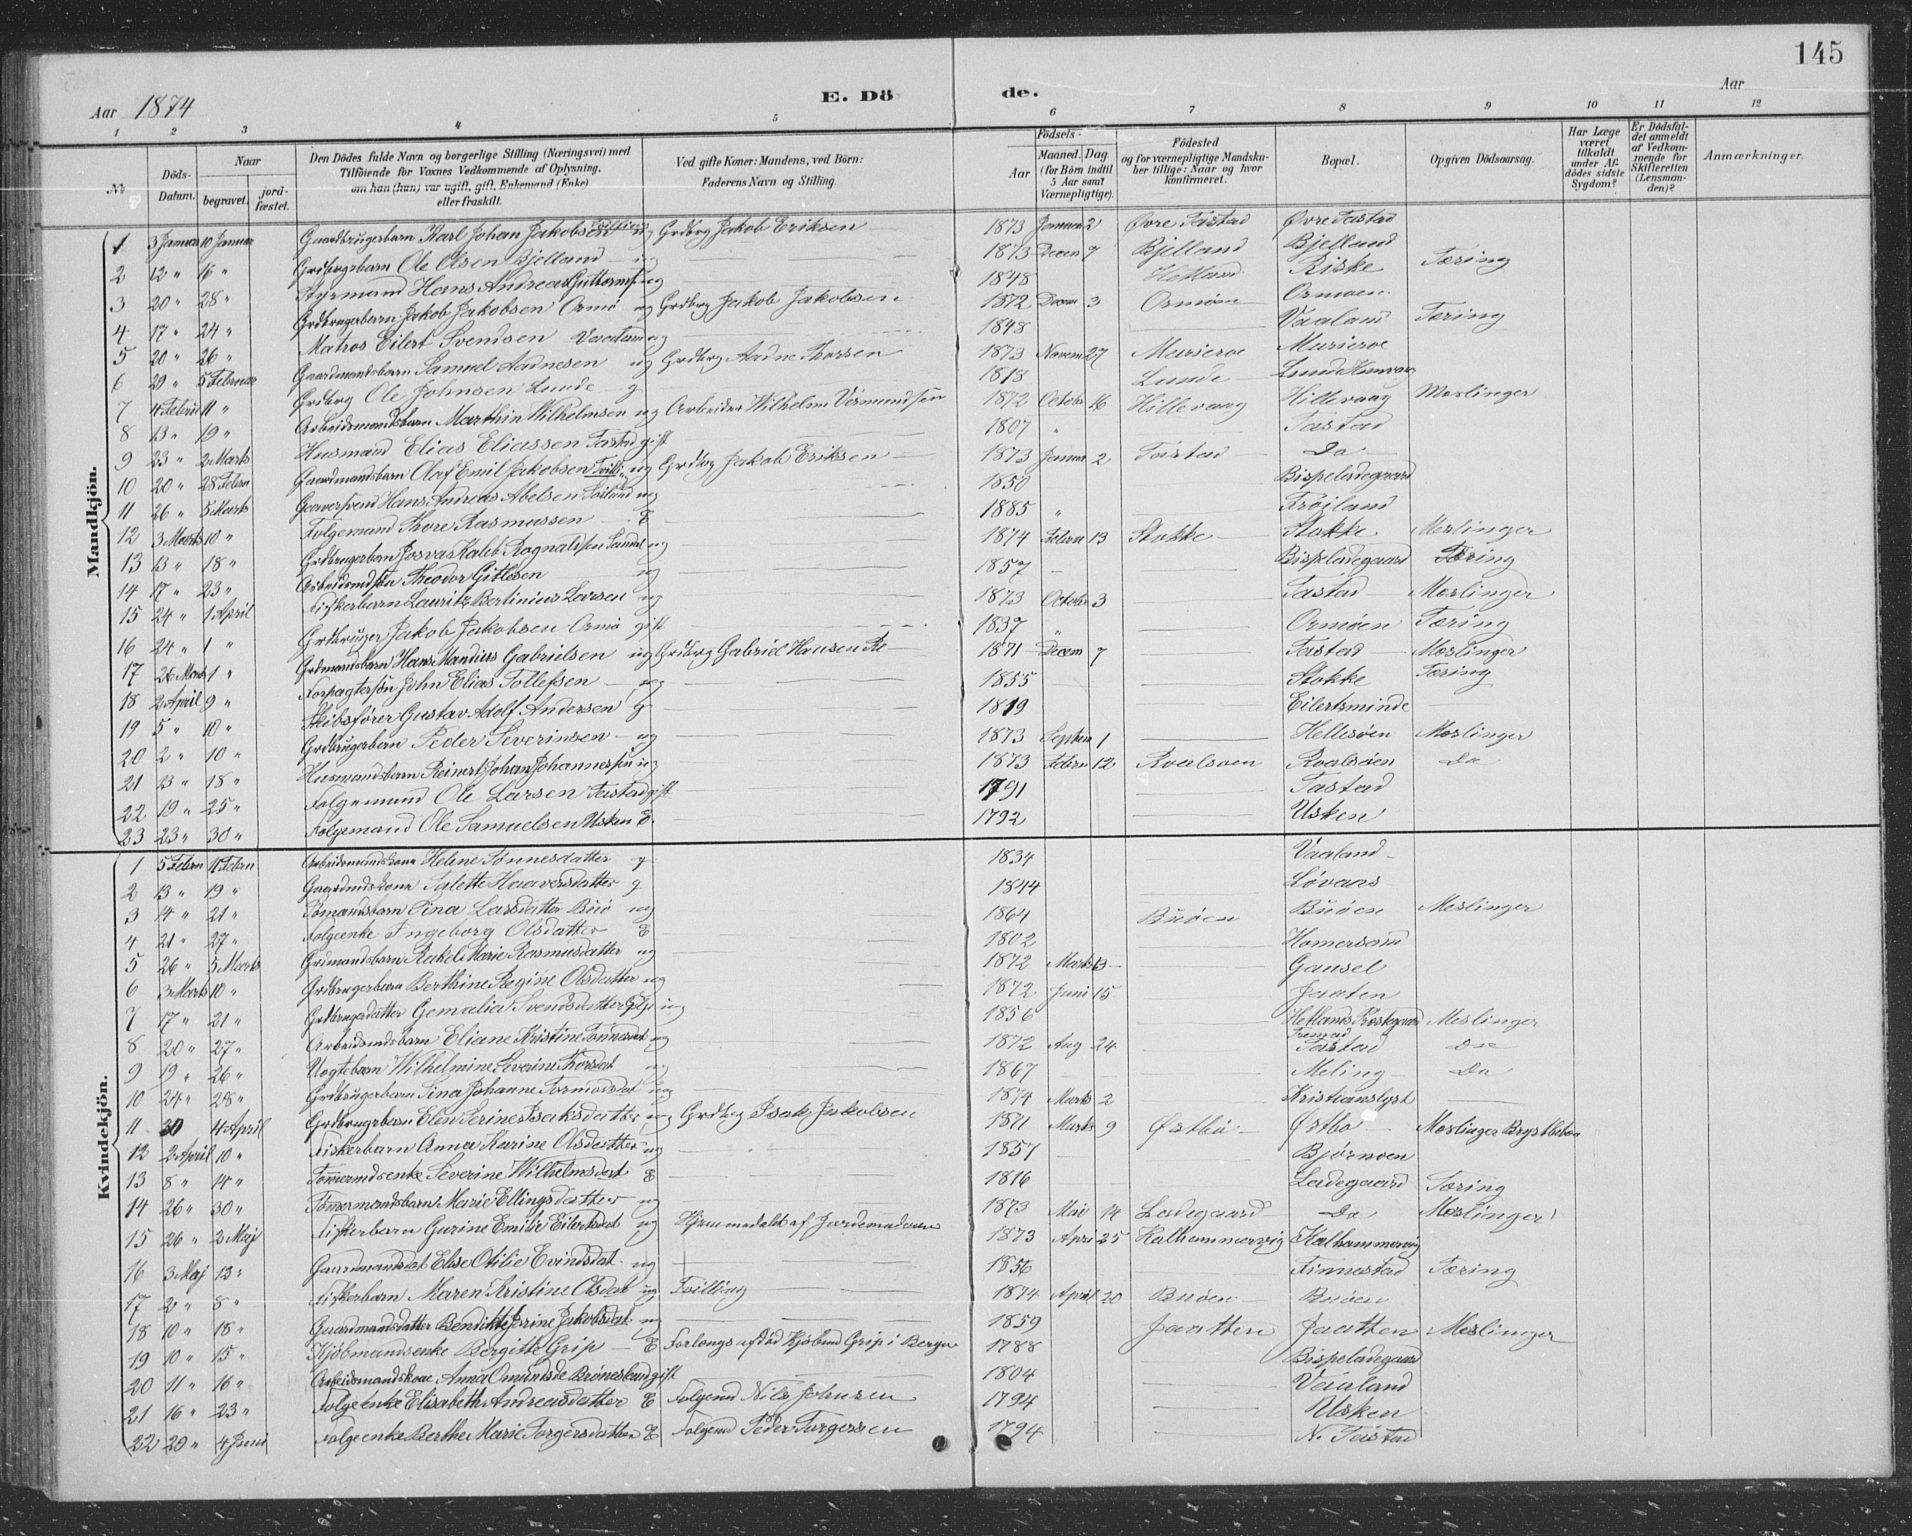 145
Aar 1874 E. Dö de. Aar
1 2 3 4 5 6 7 8 9 10 11 12
No
Döds-Datum.
Naar begravet. jord-fæstet.
Den Dödes fulde Navn og borgerlige Stilling (Næringsvei) med Tilföiende for Voxnes Vedkommende af Oplysning, om han (hun) var ugift, gift, Enkemand (Enke) eller fraskilt.
Ved gifte Koner: Mandens, ved Börn: Faderens Navn og Stilling.
Födsels-
Aar Maaned. Dag (for Börn indtil 5 Aar samt Værnepligtige).
Födested og for værnepligtige Mandskaber tillige: Naar og hvor konfirmeret.
Bopæl.
Opgiven Dödsaarsag.
Har Læge været tilkaldt under Afdödes sidste Sygdom?
Er Dödsfaldet anmeldt af Vedkommende for Skifteretten (Lensmanden)?
Anmærkninger.
Mandkjön.
1 3 Januar 10 Januar Gaardbrugerbarn Karl Johan Jakobsen Tvilling ug Grdbrg Jakob Eriksen 1873 Januar 2 Øvre Tastad Øvre Tastad
2 12 " 16 " Grdbrgsbarn Ole Olsen Bjelland ug 1873 Decem 7 Bjelland Bjelland
3 20 " 28 " Styrmand Hans Andreas Guttormsen ug 1848 Hetland Riske Tæring
4 17 " 24 " Grdbrugerbarn Jakob Jakobsen Ormø ug Grdbrg Jakob Jakobsen 1872 Decem 3 Ormøen Ormøen
5 20 " 26 " Matros Eilert Svendsen ug 1848 Vaaland Tæring
6 29 " 5 Februar Gaardmandsbarn Samuel Aadnesen ug Grdbrg Aadne Thorsen 1873 Novem 27 Marieroe Marieroe
7 4 Febru 11 " Grdbrg Ole Johnsen Lunde g 1813 Lunde Lund
8 13 " 19 " Arbeidsmandsbarn Marthin Wilhelmsen ug Arbeider Wilhelm Vermundsen 1872 Octobr 16 Hillevaag Hillevaag Meslinger
9 23 " 2 Marts Husmand Elias Eliassen Tastad gift 1807 " Tastad
10 20 " 28 Febru Gaardmandsbarn Olaf Emil Jakobsen Tvill. ug Grdbrg Jakob Eriksen 1873 Januar 2 Tastad Do
11 26 " 5 Marts Garversvend Hans Andreas Abelsen ug 1850 Bispeladegaard
12 3 Marts 10 " Folgemand Thore Rasmussen E 1885 " Frøiland
13 13 " 18 " Grdbrugerbarn Josva Kaleb Rognaldsen ug 1874 Febru 13 Stokke Stokke Meslinger
14 17 " 23 " Arbeidsmdsøn Theodor Gitlesen ug 1857 Bispeladegaard Tæring
15 24 " 1 April Fiskerbarn Lauritz Berlinius Larsen ug 1873 Octobr 3 Tastad Meslinger
16 24 " 1 " Grdbruger Jakob Jakobsen Ormø gift 1837 " Ormøen Tæring
17 26 Marts 1 " Grdmandsbarn Hans Mandius Gabrielsen ug Grdbrg Gabriel Hansen 1871 Decem 7 Tastad Meslinger
18 2 April 9 " Forpagtersøn John Elias Tollefsen ug 1855 Stokke Tæring
19 5 " 10 " Skibsfører Gustav Adolf Andersen g 1819 Eilertsminde
20 2 " 10 " Grdbrugerbarn Peder Severinsen ug 1873 Septem 1 Hellesøen Meslinger
21 13 " 18 " Husmandsbarn Reinert Johan Johannessen ug 1873 Febru 12 Roalsøen Roalsøen Do
22 19 " 25 " Folgemand Ole Larsen Tastad gift 1791 Tastad
23 23 " 30 " Folgemand Ole Samuelsen Usken E. 1792 Usken
Kvindekjön.
1 5 Febru 11 Febru Arbeidsmandskone Helene Tønnesdatter g 1834 Vaaland
2 13 " 19 " Gaardmdskone Salette Haaversdatter g 1844 Løvaas
3 14 " 21 " Tømandsbarn Sina Larsdatter Buø ug 1864 Buøen Buøen Meslinger
4 21 " 27 " Folgeenke Ingeborg Olsdatter E 1802 Homersand
5 26 " 5 Marts Grdmandsbarn Rakel Marie Rasmusdatter ug 1872 Marts 13 Gausel
6 3 Marts 10 " Grdbrugerbarn Berthine Regine Olsdatter ug 1872 Juni 15 Jaatten
7 17 " 21 " Grdbrugerdatter Gemalia Svendsdatter ug 1856 Hetlands Præstegaard Meslinger
8 20 " 27 " Arbeidsmdsbarn Eliane Kristine Tønnesdat ug 1872 Aug 24 Tastad Do
9 19 " 26 " Vogtebarn Wilhelmine Severine Thorsdat ug 1867 Meling Do
10 24 " 28 " Grdbrugerbarn Sina Johanne Tormodsdat ug 1874 Marts 2 Kristianslyst
11 30 4 April Grdbrugerbarn Elen Serine Isaksdatter ug Grdbrg Isak Jakobsen 1871 Marts 9 Østbø Østbø Meslinger
12 2 April 10 " Fiskerbarn Anna Karine Olsdatter ug 1857 Bjørnøen
13 8 " 14 " Tømermdsenke Severine Wilhelmsdat E 1816 Ladegaard Tæring
14 26 " 30 " Tømermandsbarn Marie Ellingsdatter ug 1873 Mai 14 Ladegaard Do Meslinger
15 26 " 2 Maj Fiskerbarn Gurine Emilie Eilertsdat ug Hjemmedøbt af Jordemoderen 1873 April 25 Kalhammervig Kalhammervig
16 3 Maj 13 " Gaardmandsdat Else Otilie Evindsdat ug 1856 Finnestad Tæring
17 2 " 8 " Fiskerbarn Maren Kristine Olsdat ug Tvilling 1874 April 20 Buøen Buøen
18 10 " 18 " Gaardmandsdatter Bendikte Serine Jakobsdat ug 1859 Jaatten Jaatten Meslinger
19 10 " 15 " Kjøbmandsenke Bergitte Grip E Forlængs afdød Kjøbmd Grip i Bergen 1788 Bispeladegaard
20 11 " 16 " Arbeidsmandskone Anna Omundsd gift 1804 Vaaland
21 16 " 23 " Folgeenke Elisabeth Andreasdatter E Folgemd Nils Johnsen 1794 Usken
22 29 " 4 Juni Folgeenke Berthe Marie Torgersdatter E Folgemd Peder Torgersen 1794 N. Tastad